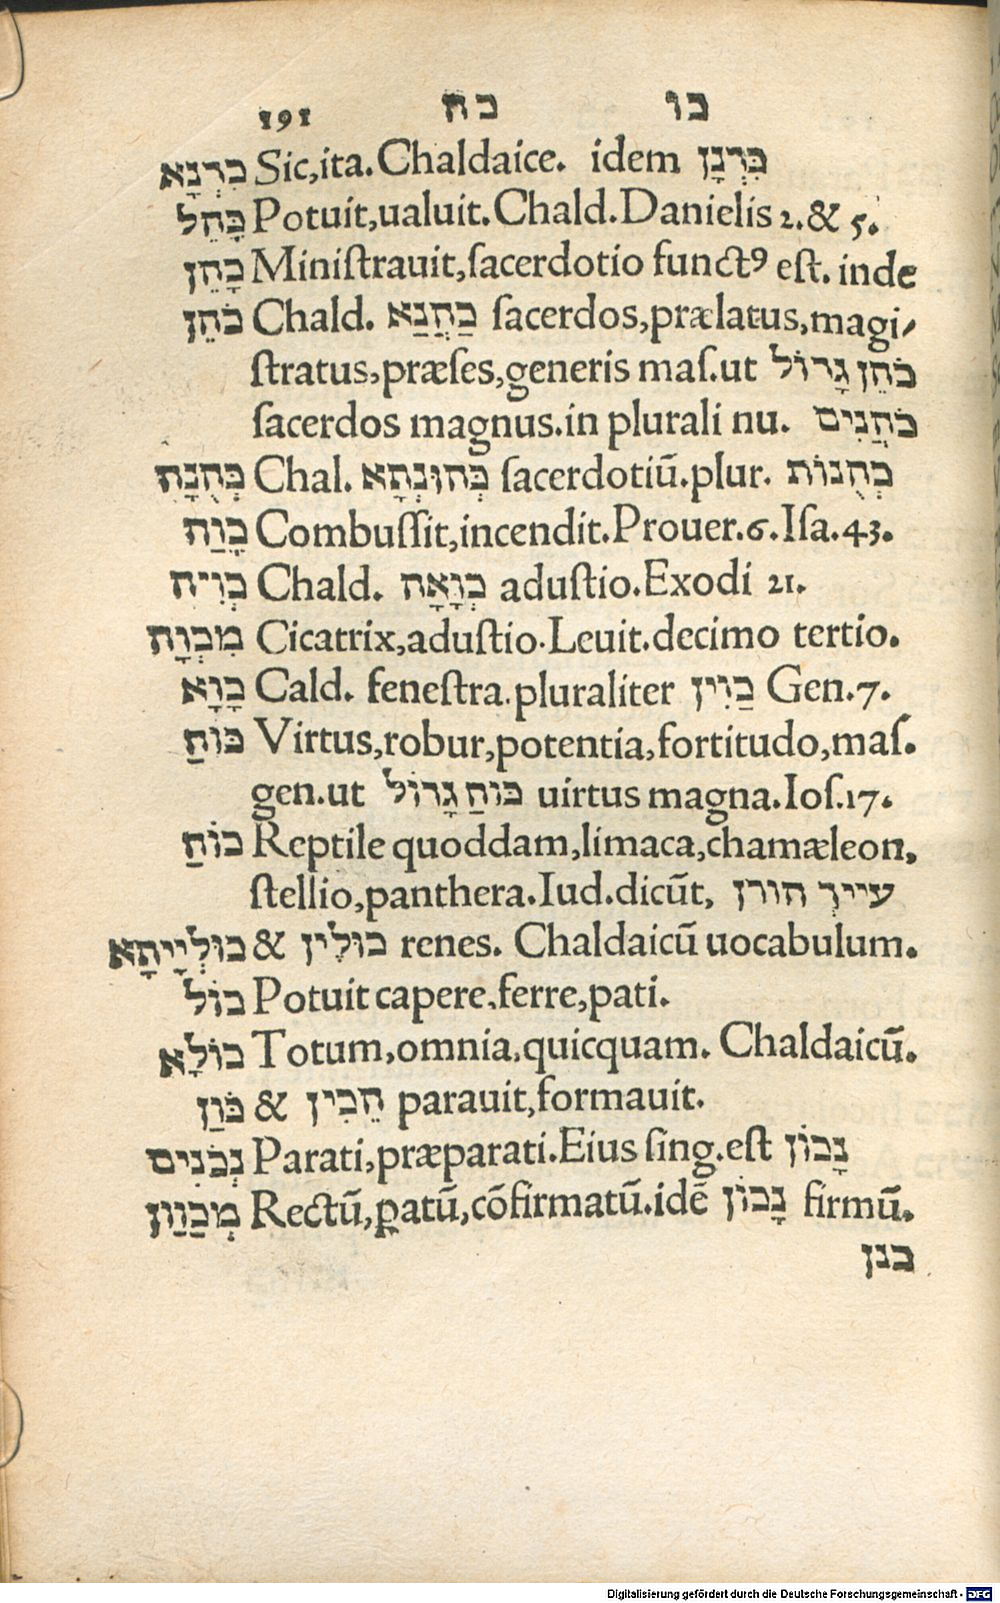 191 כח כו
כִּדְנָא Sic,ita.Chaldaice. idem כִּדְנָן
כָּהֵל Potuit,ualuit.Chald.Danielis 2.& 5.
כָּהֵן Miniſtrauit,ſacerdotio functꝰ eſt. inde
כֹּהֵן Chald. כַּהֲנַא ſacerdos,prælatus,magi/
ſtratus,præſes,generis maſ.ut כֹּהֵן גָּדוֹל
ſacerdos magnus.in plurali nu. כֹּהֲנִים
כְּהֻנָּת Chal. כְּהוּנְתָא ſacerdotiū.plur. כְּהֻנוֹת
כָּוַה Combuſſit,incendit.Prouer.6.Iſa.43.
כְּוִיה Chald. כְּוָאָה aduſtio.Exodi 21.
מִכְוָה Cicatrix,aduſtio.Leuit.decimo tertio.
כָּוָא Cald. feneſtra.pluraliter כַּוִין Gen.7.
כּוֹחַ Virtus,robur,potentia,fortitudo,maſ.
gen.ut כּוֹחַ גָּדוֹל uirtus magna.Ioſ.17.
כּוֹחַ Reptile quoddam,limaca,chamæleon,
ſtellio,panthera.Iud.dicūt,
כּוּלְיָיתָא & כּוּלִין renes. Chaldaicū uocabulum.
כּוּל Potuit capere,ferre,pati.
כּוֹלָא Totum,omnia,quicquam. Chaldaicū.
כּוַּן & הֵכִין parauit,formauit.
נְכֹנִים Parati,præparati.Eius ſing.eſt נָכוֹן
מְכַוַּון Rectū,ꝑatū,cōfirmatū.idē נָכוֹן firmū.
כנן
Digitalisierung gefördert durch die Deutsche Forschungsgemeinschaft - DFG